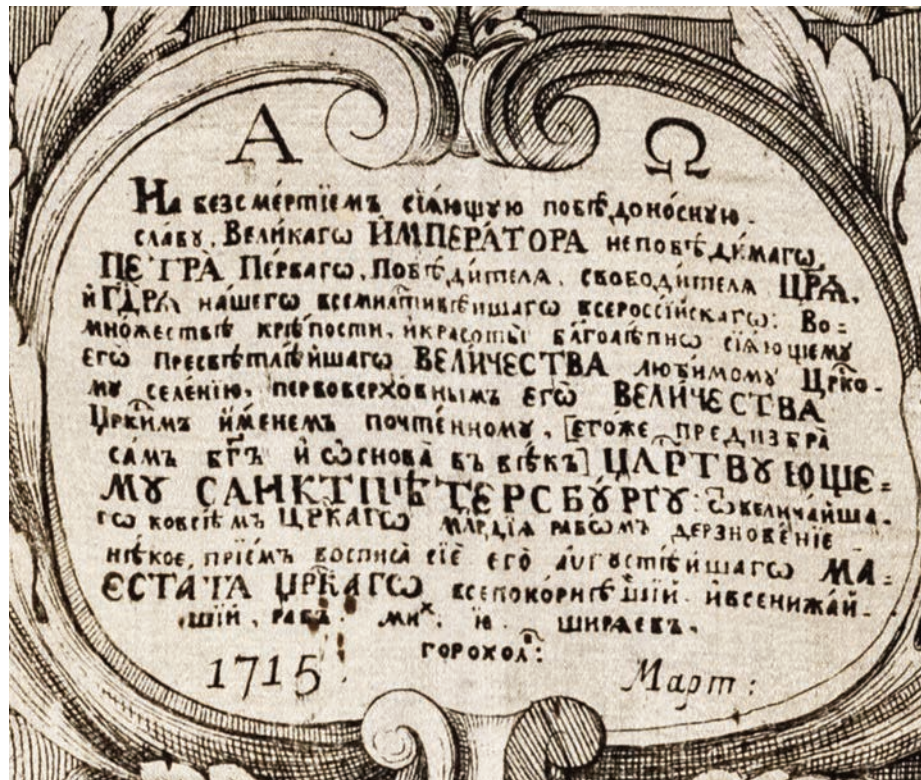 Α Ω
На безсме́ртїемъ сїѧ́ющую побѣдоно́сную
сла́ву, Вели́каго ИМПЕРА́ТОРА непобѣди́магѡ,
ПЕТРА̀ Пе́рваго, Побѣди́телѧ, свободи́телѧ ЦРѦ̀,
и҆ ГДРѦ̀ на́шегѡ всемлⷭ҇тивѣишаго всеросси́йскагѡ: Во=
мно́жествѣ крѣ́пости, и҆красоты̀ бл҃голѣ́пнѡ сїѧ́ющему
егѡ̀ пресвѣтлѣ́йшагѡ ВЕЛИ́ЧЕСТВА люби́мому Црⷭ҇ко-
му селе́нїю, первоверхо́внымъ егѡ̀ ВЕЛИ́ЧЕСТВА
Црⷭ҇кимъ и҆́менемъ почте́нному, [его́же предизбра̀
са́мъ бг҃ъ и҆ ѡснова̀ въ вѣ́къ] ЦАРТВꙊЮЩЕ=
МꙊ САНКТПѢ́ТЕРСБꙊ́РГꙊ: ѿвелича́йша-
гѡ ковсѣ́мъ ЦРⷭ҇КАГѠ млⷭ҇рдїѧ рабѡ́мъ дерзнове́нїе
нѣ́кое, прїе́мъ восписа̀ сїѐ его̀ аѵгустѣ́йшагѡ МА=
ЕСТАТА ЦРⷭ҇КАГѠ всепокорнѣ́шїй. ивсенижа́й-
шїй. рабъ. миⷯ. и. ширѧевъ.
горохолⷡ:
1715 Март: